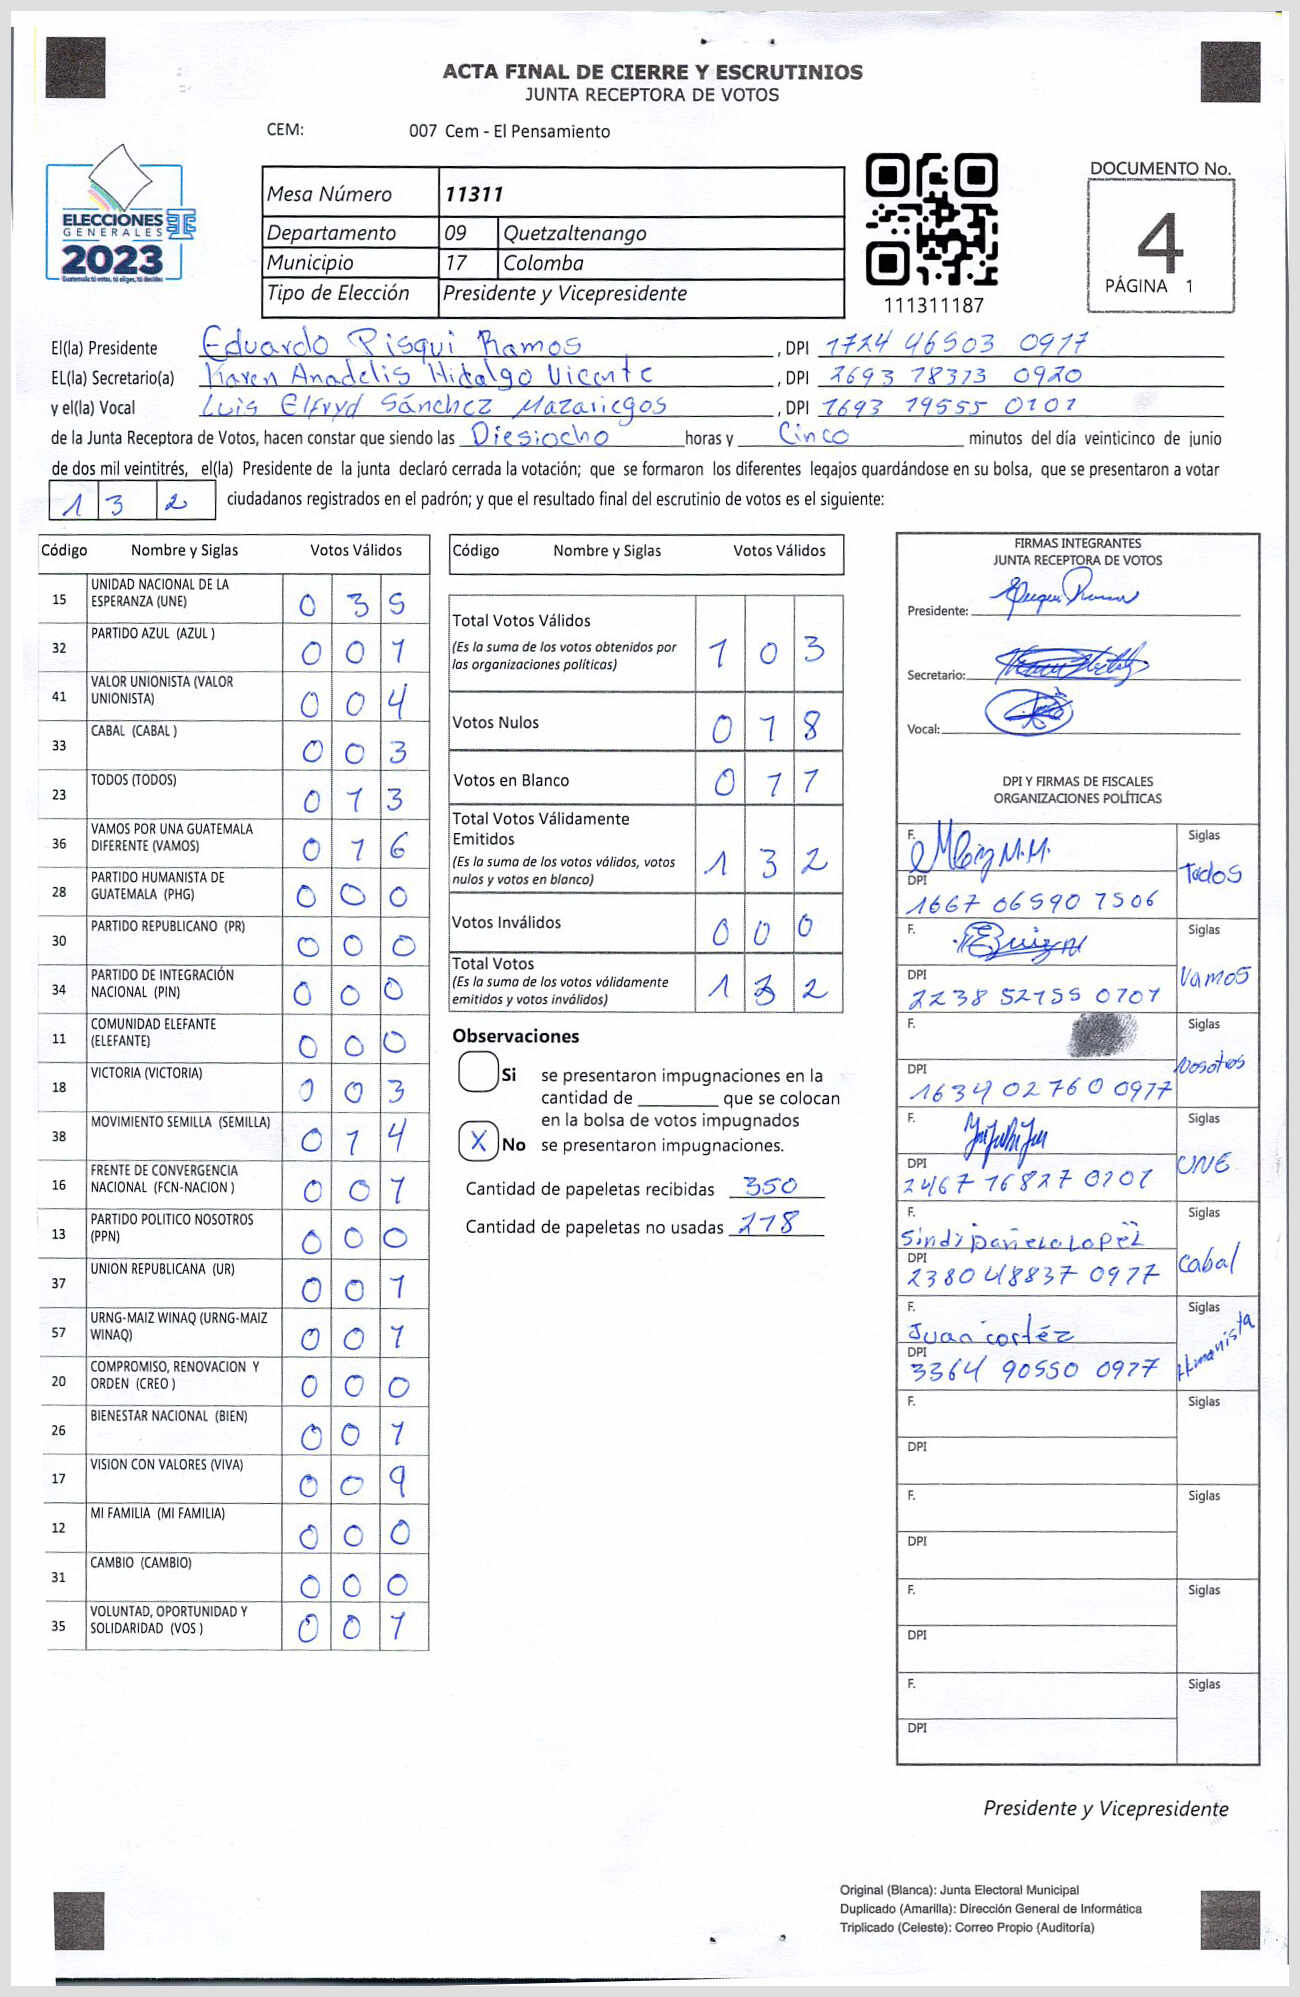 ACTA FINAL DE CIERRE Y ESCRUTINIOS
JUNTA RECEPTORA DE VOTOS
CEM: 007 Cem - El Pensamiento
ELECCIONES
GENERALES
2023
Mesa Número 11311
Departamento 09 Quetzaltenango
Municipio 17 Colomba
Tipo de Elección Presidente y Vicepresidente
111311187
DOCUMENTO No.
4
PÁGINA 1
El(la) Presidente Eduardo Pisqui Ramos, DPI 1724 46503 0917
EL(la) Secretario(a) Karen Anadelis Hidalgo Vicente, DPI 2693 78373 0920
y el(la) Vocal Luis Elfryd Sánchez Mazariegos, DPI 1693 19555 0101
de la Junta Receptora de Votos, hacen constar que siendo las Diesiocho horas y Cinco minutos del día veinticinco de junio
de dos mil veintitrés, el(la) Presidente de la junta declaró cerrada la votación; que se formaron los diferentes legajos quardándose en su bolsa, que se presentaron a votar
1 3 2 ciudadanos registrados en el padrón; y que el resultado final del escrutinio de votos es el siguiente:
Código Nombre y Siglas Votos Válidos
15 UNIDAD NACIONAL DE LA ESPERANZA (UNE) 0 3 5
32 PARTIDO AZUL (AZUL ) 0 0 1
41 VALOR UNIONISTA (VALOR UNIONISTA) 0 0 4
33 CABAL (CABAL ) 0 0 3
23 TODOS (TODOS) 0 1 3
36 VAMOS POR UNA GUATEMALA DIFERENTE (VAMOS) 0 1 6
28 PARTIDO HUMANISTA DE GUATEMALA (PHG) 0 0 0
30 PARTIDO REPUBLICANO (PR) 0 0 0
34 PARTIDO DE INTEGRACIÓN NACIONAL (PIN) 0 0 0
11 COMUNIDAD ELEFANTE (ELEFANTE) 0 0 0
18 VICTORIA (VICTORIA) 0 0 3
38 MOVIMIENTO SEMILLA (SEMILLA) 0 1 4
16 FRENTE DE CONVERGENCIA NACIONAL (FCN-NACION ) 0 0 1
13 PARTIDO POLITICO NOSOTROS (PPN) 0 0 0
37 UNION REPUBLICANA (UR) 0 0 1
57 URNG-MAIZ WINAQ (URNG-MAIZ WINAQ) 0 0 1
20 COMPROMISO, RENOVACION Y ORDEN (CREO ) 0 0 0
26 BIENESTAR NACIONAL (BIEN) 0 0 1
17 VISION CON VALORES (VIVA) 0 0 9
12 MI FAMILIA (MI FAMILIA) 0 0 0
31 CAMBIO (CAMBIO) 0 0 0
35 VOLUNTAD, OPORTUNIDAD Y SOLIDARIDAD (VOS ) 0 0 1
Código Nombre y Siglas Votos Válidos
Total Votos Válidos 1 0 3
(Es la suma de los votos obtenidos por
las organizaciones políticas)
Votos Nulos 0 1 8
Votos en Blanco 0 1 1
Total Votos Válidamente
Emitidos 1 3 2
(Es la suma de los votos válidos, votos
nulos y votos en blanco)
Votos Inválidos 0 0 0
Total Votos 1 3 2
(Es la suma de los votos válidamente
emitidos y votos inválidos)
Observaciones
Si se presentaron impugnaciones en la
cantidad de ________ que se colocan
en la bolsa de votos impugnados
X No se presentaron impugnaciones.
Cantidad de papeletas recibidas 350
Cantidad de papeletas no usadas 218
FIRMAS INTEGRANTES
JUNTA RECEPTORA DE VOTOS
Presidente:
Secretario:
Vocal:
DPI Y FIRMAS DE FISCALES
ORGANIZACIONES POLÍTICAS
F. Siglas Todos
DPI 1667 06590 1506
F. Siglas Vamos
DPI 2238 52155 0101
F. Siglas Nosotros
DPI 1634 02760 0917
F. Siglas UNE
DPI 2467 16827 0101
F. Siglas Cabal
DPI 2380 48837 0917
F. Juan cortéz Siglas Humanista
DPI 3364 90550 0917
F. Siglas
DPI
F. Siglas
DPI
F. Siglas
DPI
F. Siglas
DPI
Presidente y Vicepresidente
Original (Blanca): Junta Electoral Municipal
Duplicado (Amarilla): Dirección General de Informática
Triplicado (Celeste): Correo Propio (Auditoría)